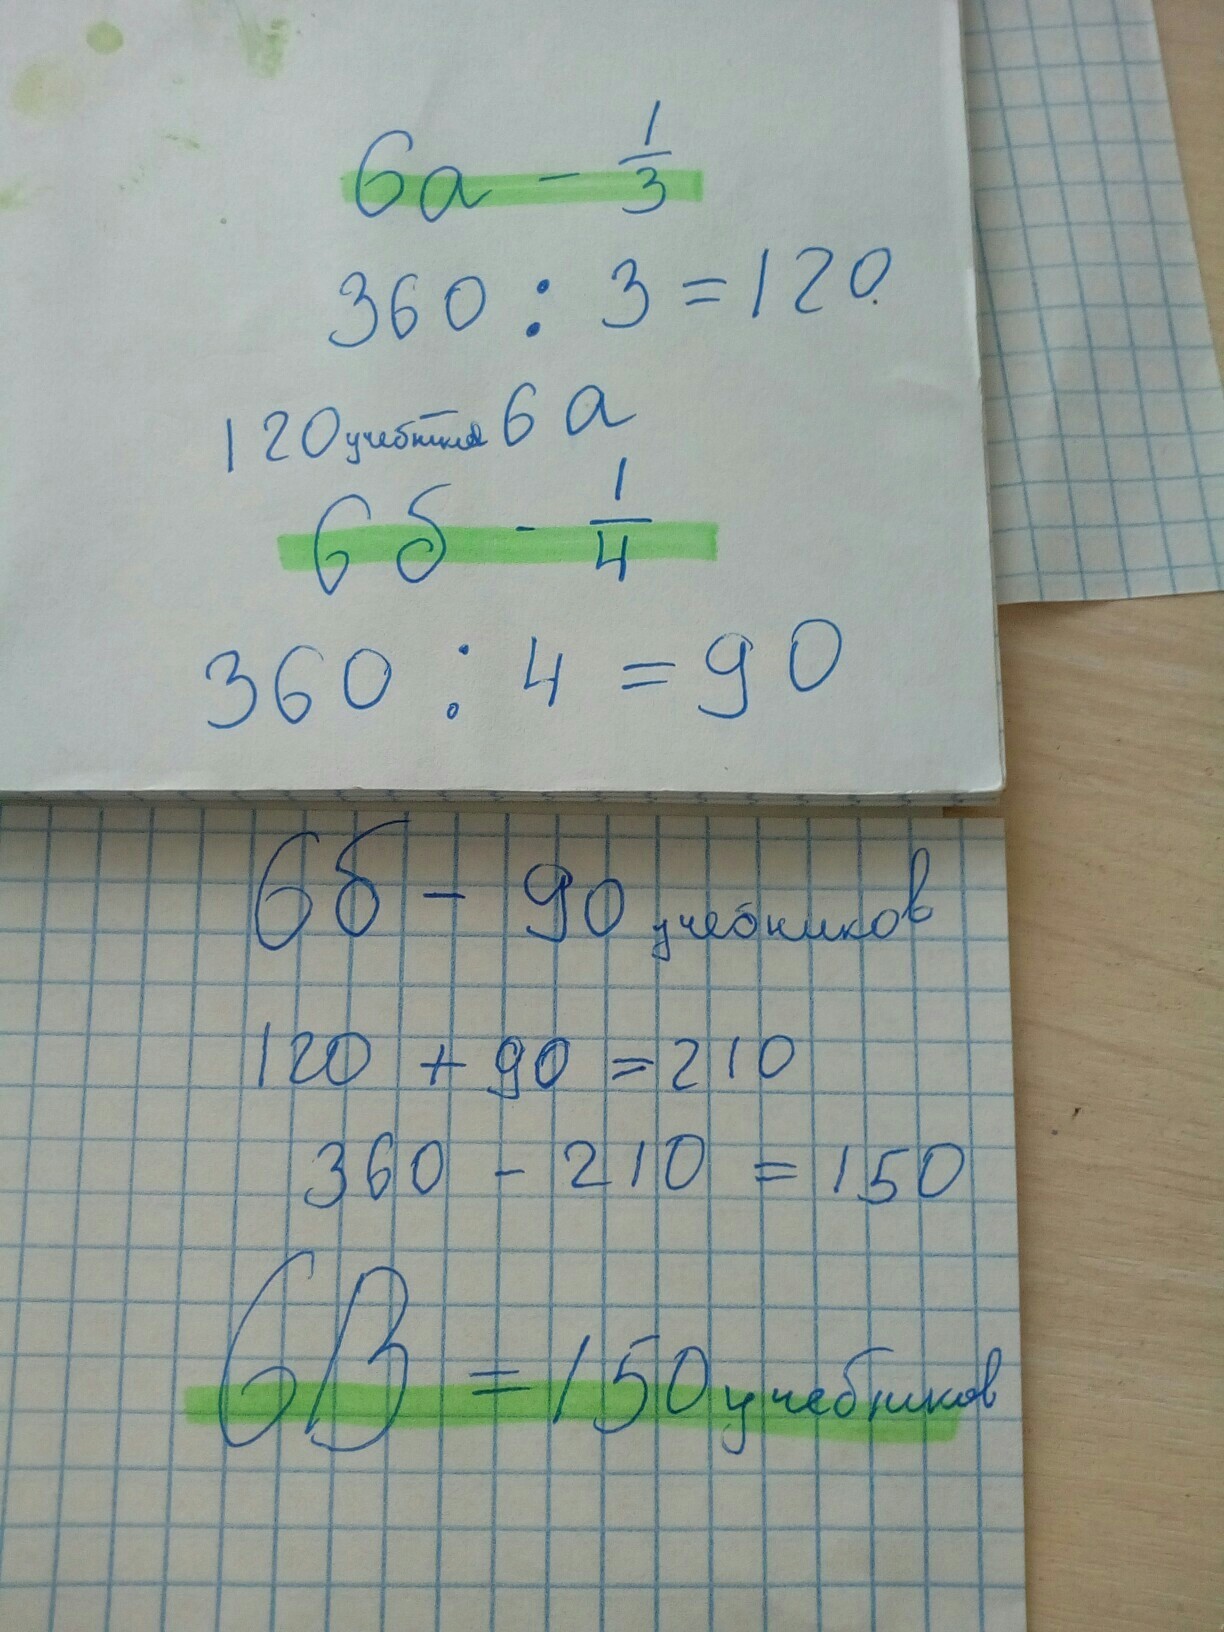 6а - 1/3
360 : 3 = 120
120 учебника 6 а
6 б - 1/4
360 : 4 = 90
6б - 90 учебников
120 + 90 = 210
360 - 210 = 150
6В = 150 учебников